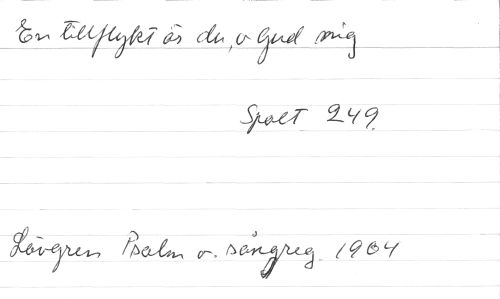 En tillflykt äs du, o Gud mig
Spalt 249.
Lövgren Psalm o. sångreg. 1964